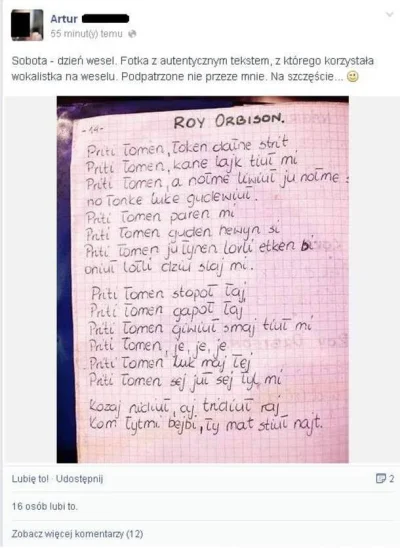 Artur
55 minut(y) temu
Sobota - dzień wesel. Fotka z autentycznym tekstem, z którego korzystała
wokalistka na weselu. Podpatrzone nie przeze mnie. Na szczęście...
-14-
ROY ORBISON.
Priti Łomen, Łoken dałne strit
Priti Łomen, kane lajk tiuł mi
Priti Łomen, a nołme ju nołme
no Łonke luke
Priti Łomen paren mi
Priti Łomen guden hewyn si
Priti Łomen ju łyren lovli etken bi
oniuł lotli dziui slaj mi.
Priti Łomen stopoł łaj
Priti Łomen gapoł łaj
Priti Łomen giwiuł smaj tiuł mi
Priti Łomen, je, je, je
Priti Łomen luk maj łej
Priti Łomen sej juł sej łył mi
Kozaj nidiuł, aj tridiuł raj
Kom łytmi bejbi, ły mat stiuł najt.
Lubię to! · Udostępnij
2
16 osób lubi to.
Zobacz więcej komentarzy (12)